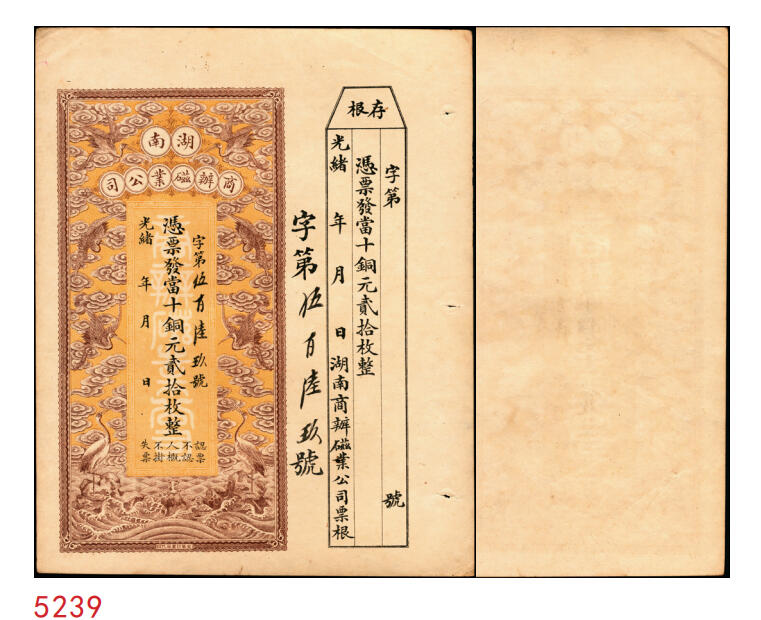 湖南
商辦磁業公司
字第伍百陸玖號
憑票發當十銅元貳拾枚整
光緒 年 月 日
認票不認人
概不掛失票
字第伍百陸玖號
存根
字第 號
憑票發當十銅元貳拾枚整
光緒 年 月 日湖南商辦磁業公司票根
5239